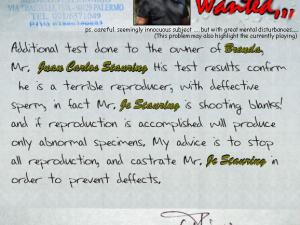 Wanted,,,
ps. careful. seemingly innocuous subject .... but with great mental disturbances.....
(This problem may also highlight the currently playing)
Additional test done to the owner of Brenda,
Mr. Juan Carlos Stauring His test results confirm
he is a terrible reproducer, with defective
sperm, in fact Mr. Jc Stauring is shooting blanks!
and if reproduction is accomplished will produce
only abnormal specimens. My advice is to stop
all reproduction, and castrate Mr. Jc Stauring in
order to prevent deffects.